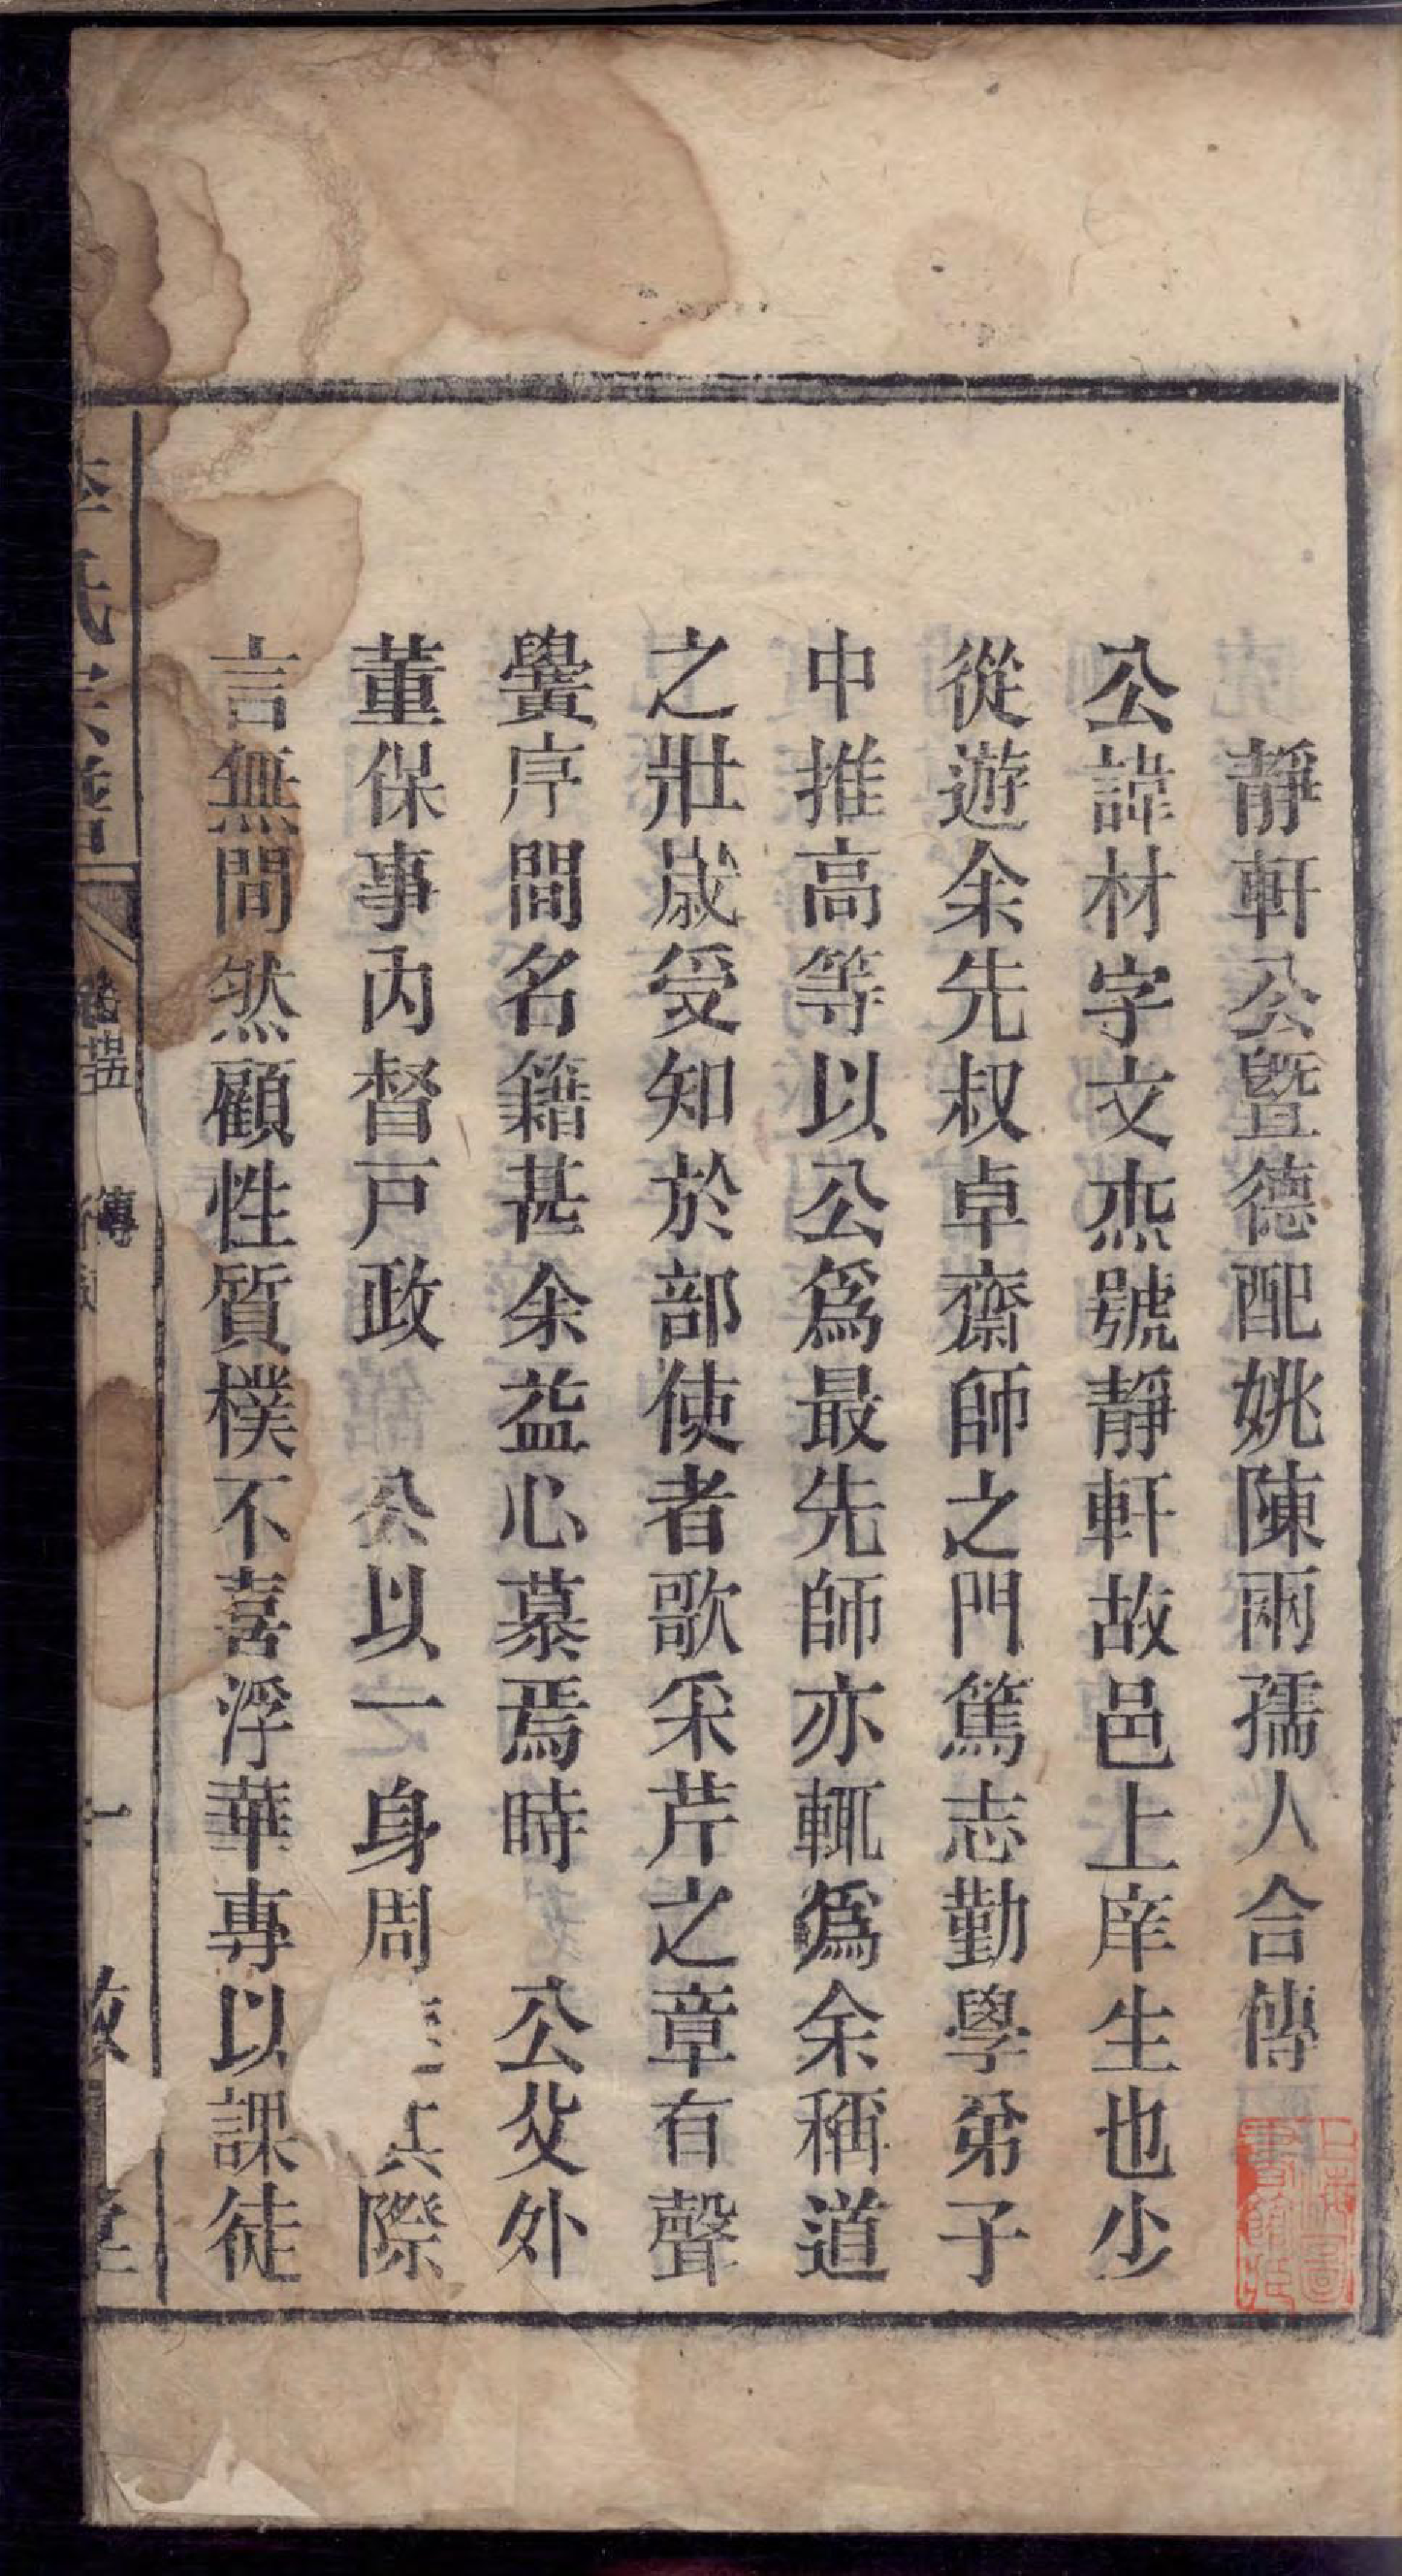 靜軒公曁德配姚陳兩孺人合傳
公諱材字文焘號靜軒故邑上庠生也少
從遊余先叔卓齋師之門篤志勤學弟子
中推高等以公爲最先師亦輒爲余稱道
之壯歲受知於部使者歌采芹之章有聲
黌序間名籍甚余益心慕焉時 公父外
董保事內督戸政 公以一身周其際
言無間然顧性質樸不喜浮華專以課徒
氏宗譜
傳
一
堂